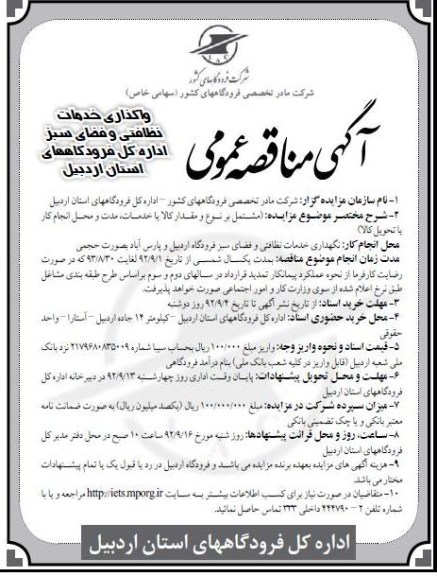 شرکت فرودگاههای کشور
شرکت مادر تخصصی فرودگاههای کشور (سهامی خاص)
آگهی مناقصه عمومی
واگذاری خدمات
نظافتی و فضای سبز
اداره کل فرودگاههای
استان اردبیل
۱- نام سازمان مزایده گزار: شرکت مادر تخصصی فرودگاههای کشور - اداره کل فرودگاههای استان اردبیل
۲- شرح مختصر موضوع مزایده: (مشتمل بر نوع و مقدار کالا یا خدمات، مدت و محل انجام کار
یا تحویل کالا)
محل انجام کار: نگهداری خدمات نظافتی و فضای سبز فرودگاه اردبیل و پارس آباد بصورت حجمی
مدت زمان انجام موضوع مناقصه: بمدت یکسال شمسی از تاریخ ۹۲/۹/۱ لغایت ۹۳/۸/۳۰ که در صورت
رضایت کارفرما از نحوه عملکرد پیمانکار تمدید قرارداد در سالهای دوم و سوم براساس طرح طبقه بندی مشاغل
طبق نرخ اعلام شده از سوی وزارت کار و امور اجتماعی صورت خواهد پذیرفت.
۳- مهلت خرید اسناد: از تاریخ نشر آگهی تا تاریخ ۹۲/۹/۴ روز دوشنبه
۴- محل خرید حضوری اسناد: اداره کل فرودگاههای استان اردبیل - کیلومتر ۱۲ جاده اردبیل - آستارا - واحد
حقوقی
۵- قیمت اسناد و نحوه واریز وجه: واریز مبلغ ۱۰۰/۰۰۰ ریال بحساب سیبا شماره ۲۱۷۹۶۸۰۸۳۵۰۰۹ نزد بانک
ملی شعبه اردبیل (قابل واریز در کلیه شعب بانک ملی) بنام درآمد فرودگاهی
۶- مهلت و محل تحویل پیشنهادات: پایان وقت اداری روز چهارشنبه ۹۲/۹/۱۳ در دبیرخانه اداره کل
فرودگاههای استان اردبیل
۷- میزان سپرده شرکت در مزایده: مبلغ ۱۰۰/۰۰۰/۰۰۰ ریال (یکصد میلیون ریال) به صورت ضمانت نامه
معتبر بانکی و یا چک تضمینی بانکی
۸- ساعت، روز و محل قرائت پیشنهادها: روز شنبه مورخ ۹۲/۹/۱۶ ساعت ۱۰ صبح در محل دفتر مدیر کل
فرودگاههای استان اردبیل
۹- هزینه آگهی های مزایده بعهده برنده مزایده می باشد و فرودگاه اردبیل در رد یا قبول یک یا تمام پیشنهادات
مختار می باشد.
۱۰- متقاضیان در صورت نیاز برای کسب اطلاعات بیشتر به سایت http://iets.mporg.ir مراجعه و یا با
شماره تلفن ۲ - ۴۴۴۷۹۰ داخلی ۳۳۳ تماس حاصل نمائید.
اداره کل فرودگاههای استان اردبیل